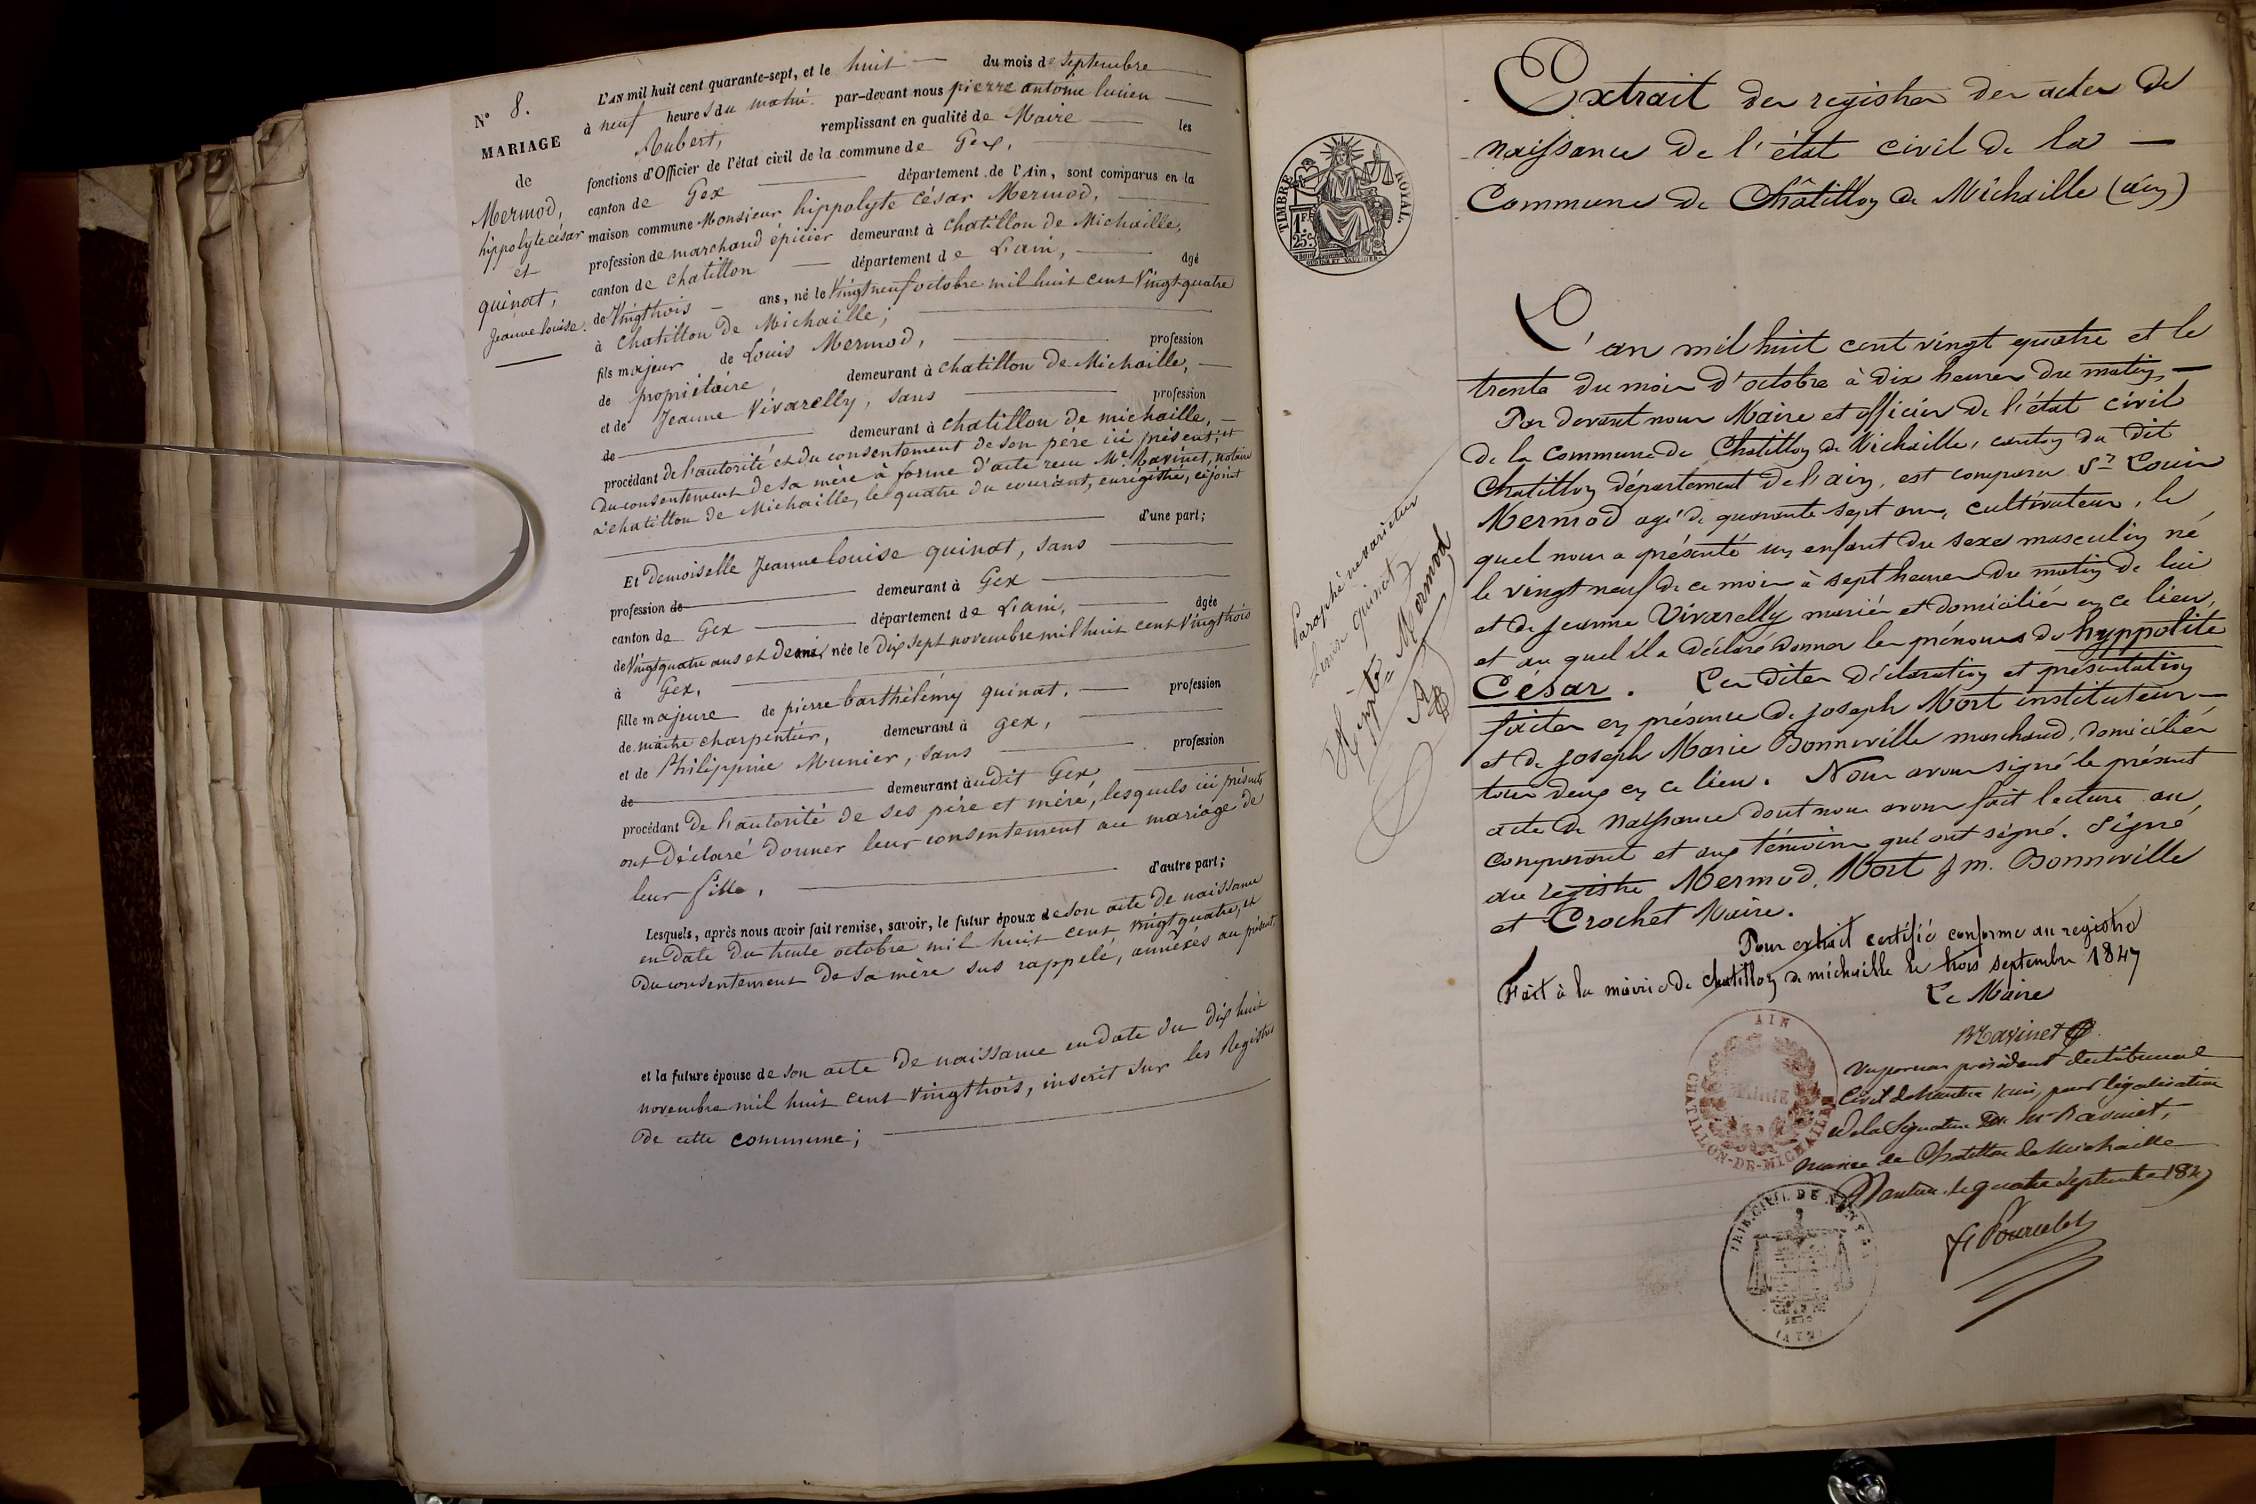 N° 8.
MARIAGE
de
Mermod,
hippolyte césar
et
quinat,
Jeanne Louise.
L'AN mil huit cent quarante-sept, et le huit du mois de septembre
à neuf heures du matin par-devant nous pierre antoine lucien
Aubert, remplissant en qualité de Maire les
fonctions d'Officier de l'état civil de la commune de Gex,
canton de Gex département de l'Ain, sont comparus en la
maison commune Monsieur hippolyte césar Mermod,
profession de marchand épicier demeurant à Chatillon de Michaille,
canton de Chatillon département de L'ain, âgé
de Vingt trois ans, né le Vingt neuf octobre mil huit cent Vingt quatre
à Chatillon de Michaille;
fils majeur de Louis Mermod, profession
de propriétaire, demeurant à Chatillon de Michaille,
et de Jeanne Vivarelly, sans profession
de demeurant à Chatillon de michaille,
procédant de l'autorité et du consentement de son père ici présent; et
du consentement de sa mère à forme d'acte reçu Me Ravinet, notaire
à Chatillon de Michaille, le quatre du courant, enrégitré, cijoint
d'une part;
Et Demoiselle Jeanne Louise quinat, sans
profession de demeurant à Gex
canton de Gex département de L'ain, âgée
de Vingt quatre ans et demi, née le Dix sept novembre mil huit cent Vingt trois
à Gex,
fille majeure de pierre barthélémy quinat, profession
de maitre charpentier, demeurant à gex,
et de Philippine Munier, sans profession
de demeurant à udit Gex,
procédant de l'autorité de ses père et mère, lesquels ici présents
ont déclaré donner leur consentement au mariage de
leur fille, d'autre part;
Lesquels, après nous avoir fait remise, savoir, le futur époux de son acte de naissance
en date du trente octobre mil huit cent vingt quatre, et
du consentement de sa mère sus rappelé, annexés au présent,
et la future épouse de son acte de naissance en date du dix huit
novembre mil huit cent vingt trois, inscrit sur les Registres
de cette commune;
TIMBRE ROYAL.
1 F.
25 c.
Paraphé ne varietur
Louise quinat
Hippte Mermod
Extrait des registres des actes de
naissance de l'état civil de la
Commune de Châtillon de Michaille (ain)
L'an mil huit cent vingt quatre et le
trente du mois d'octobre à dix heures du matin,
Par devant nous Maire et officier de l'état civil
de la Commune de Chatillon de Michaille, canton du dit
Chatillon département de l'ain, est comparu Sr Louis
Mermod agé de quarante sept ans, cultivateur, le
quel nous a présenté un enfant du sexe masculin né
le vingt neuf de ce mois à sept heures du matin de lui
et de Jeanne Vivarelly mariés et domiciliés en ce lieu,
et au quel il a déclaré donner les prénoms de hyppolite
César. Les dites déclaration et présentation
faites en présence de Joseph Mort instituteur
et de Joseph Marie Bonneville marchand, domiciliés
tous deux en ce lieu. Nous avons signé le présent
acte de Naissance dont nous avons fait lecture au
comparant et aux témoins qui ont signé. Signé
au registre Mermod, Mort J m. Bonneville
et Crochet Maire.
Pour extrait certifié conforme au registre
Fait à la mairie de chatillon de michaille le trois septembre 1847
Le Maire
Ravinet
Vu par nous président du tribunal
Civil de Nantua (ain), pour légalisation
de la signature de Mr Ravinet,
Maire de Chatillon de Michaille
Nantua, le quatre septembre 1847
AIN
MAIRIE
CHATILLON-DE-MICHAILLE
TRIB. CIVIL DE NANTUA
(AIN)